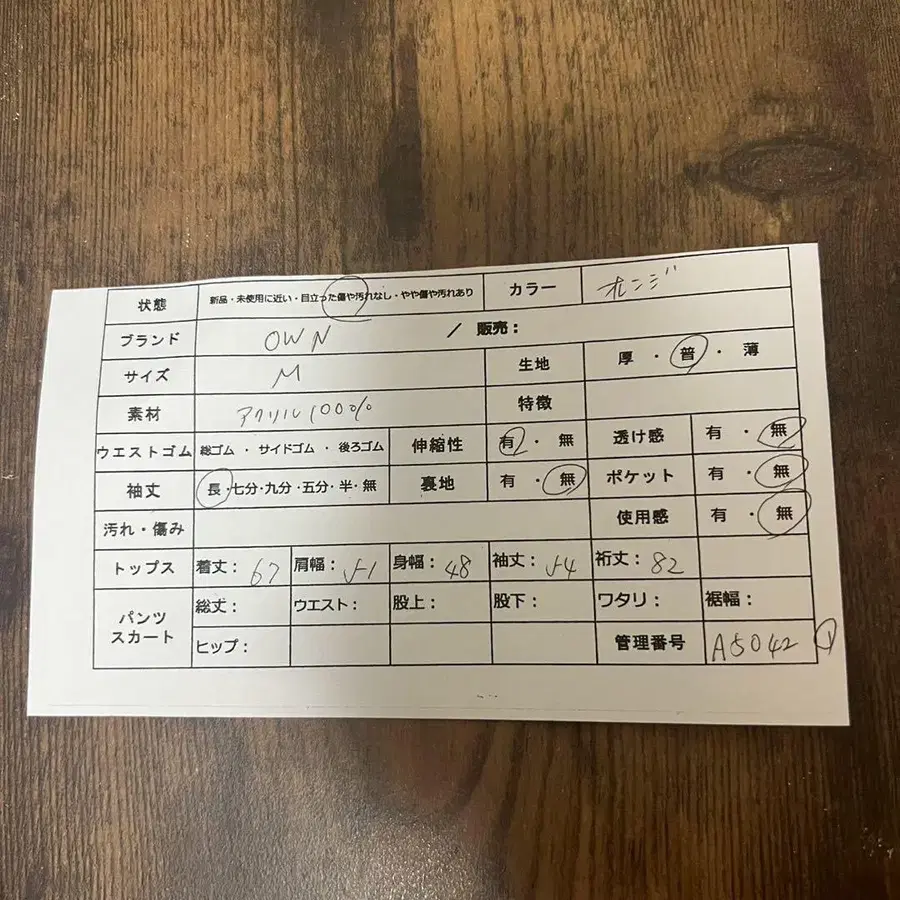 状態 新品・未使用に近い・目立った傷や汚れなし・やや傷や汚れあり カラー オレンジ
ブランド OWN / 販売：
サイズ M 生地 厚・普・薄
素材 アクリル100% 特徴
ウエストゴム 総ゴム ・ サイドゴム ・ 後ろゴム 伸縮性 有・無 透け感 有・無
袖丈 長・七分・九分・五分・半・無 裏地 有・無 ポケット 有・無
汚れ・傷み 使用感 有・無
トップス 着丈：67 肩幅：51 身幅：48 袖丈：54 裄丈：82
パンツ スカート 総丈： ウエスト： 股上： 股下： ワタリ： 裾幅：
ヒップ： 管理番号 A5042 ①